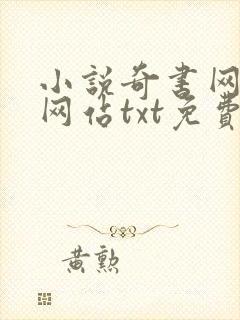 小説奇書网
网估txt免費
黄勲